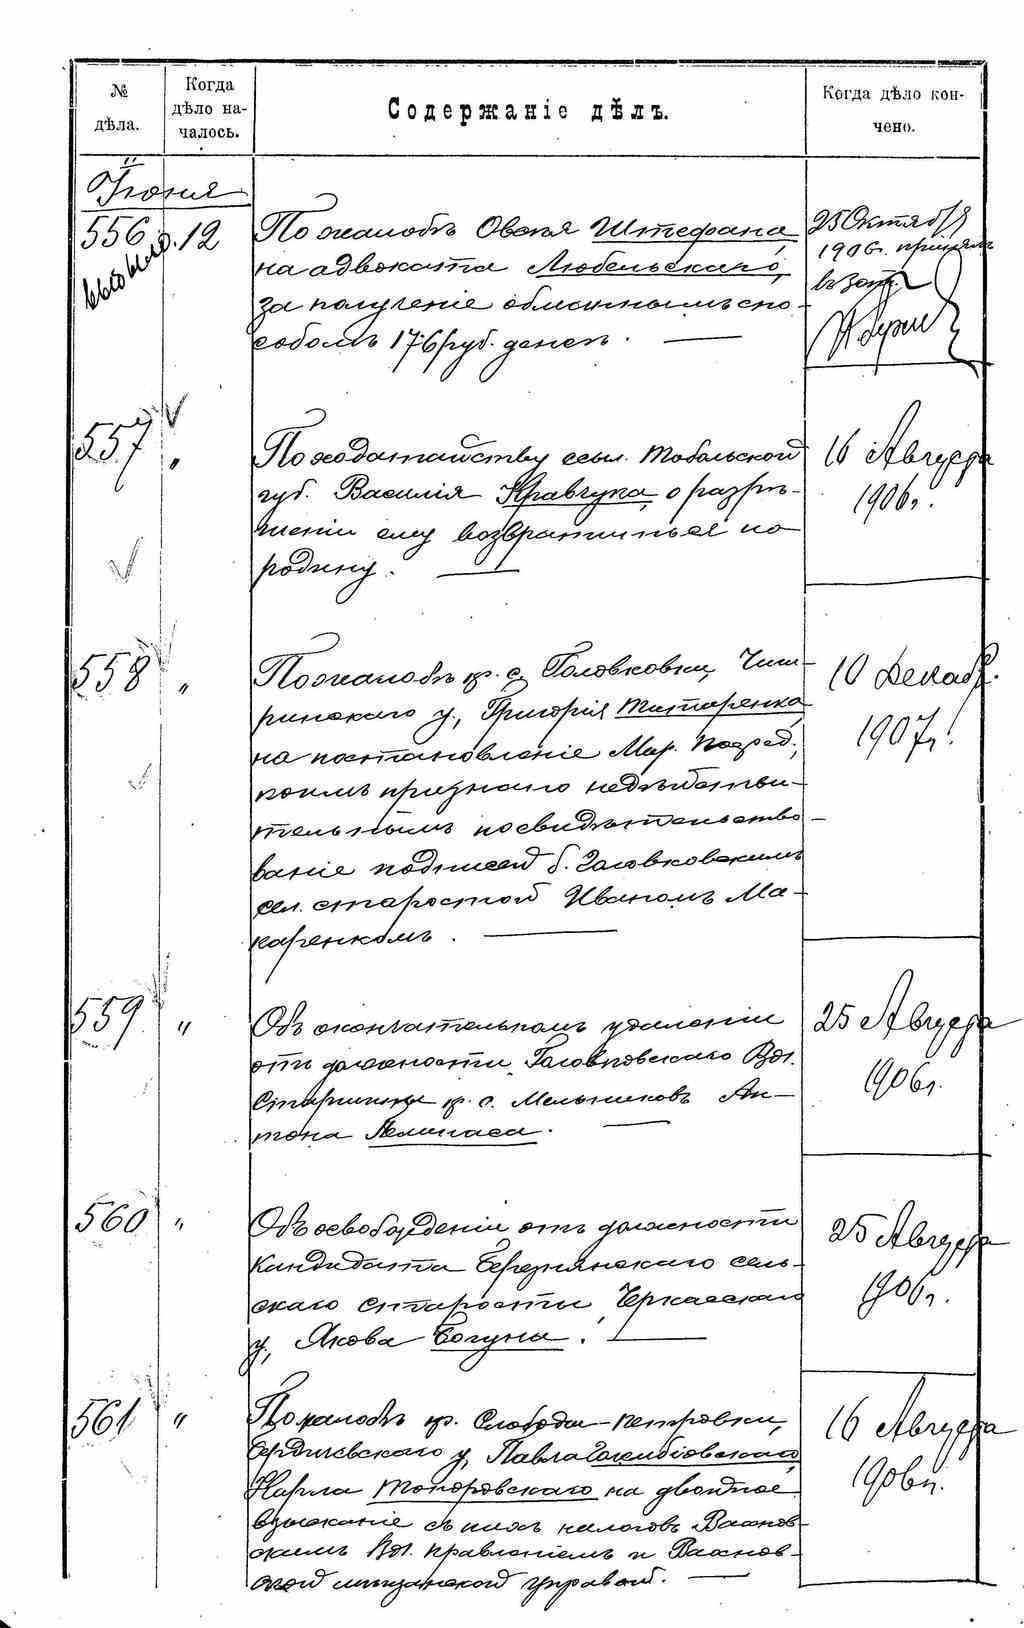 № дѣла.
Когда дѣло на-
чалось.
Содержаніе дѣлъ.
Когда дѣло кон-
чено.
Іюня
556 12
По жалобѣ Овсея Штефана
на адвоката Любельскаго,
за полученіе обманнымъ спо-
собомъ 176 руб. денегъ.
25 Октября
1906г. принялъ
557 "
По ходатайству ссыл. Тобольской
губ. Василія Кравчука, о разрѣ-
шеніи ему возвратиться на
родину.
16 Августа
1906г.
558 "
По жалобѣ кр. с. Головковки, Чиги-
ринскаго у., Григорія Титаренка,
на постановленіе Мир. Посред.,
коимъ признано недѣйстви-
тельнымъ посвидѣтельство-
ваніе подписей б. Головковскимъ
сел. старостой Иваномъ Ма-
каренкомъ.
10 Декабр.
1907г.
559 "
Объ окончательномъ удаленіи
отъ должности Головковскаго Вол.
Старшины кр. с. Мельниковъ Ан-
тона
25 Августа
1906г.
560 "
Объ освобожденіи отъ должности
Кандидата Березнянскаго сель-
скаго старосты, Черкасскаго
у., Якова Богуна.
25 Августа
1906г.
561 "
По жалобѣ кр. Слободы-Петровки,
Бердичевскаго у. Павла
Карла Топоровскаго на двойное
взысканіе съ нихъ налоговъ Вахнов-
скимъ Вол. правленіемъ и Вахнов-
ской мѣщанской управой.
16 Августа
1906г.